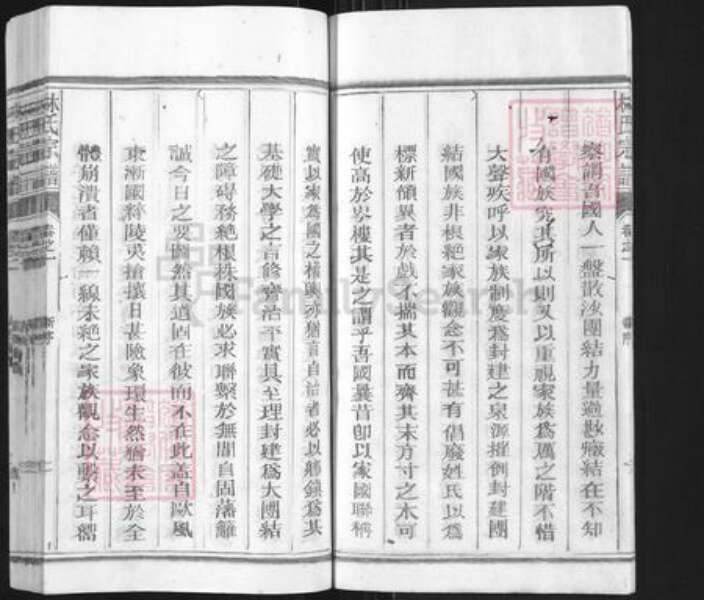 察謂吾國人一盤散沙團結力量過尠癥結在不知
有國族究其所以則又以重視家族為厲之階不惜
大聲疾呼以家族制度為封建之泉源摧倒封建團
結國族非根絕家族觀念不可甚有倡廢姓氏以為
標新領異者於戲不揣其本而齊其末方寸之木可
使高於岑樓其是之謂乎吾國曩昔卽以家國聯稱
實以家為國之 亦猶言自治者必以鄉鎮為其
基礎大學之言修齊治平實其至理封建為大團結
之障碍務絕根株國族必求聯繫於無間自固藩籬
誠今日之要圖然其道固在彼而不在此蓋自歐風
東漸國粹陵夷搶攘日甚險象環生然猶未至於全
體崩潰者僅賴一線未絕之家族觀念以聯之耳
林氏宗譜
卷之一
林氏宗譜
卷之一
新序
FamilySearch